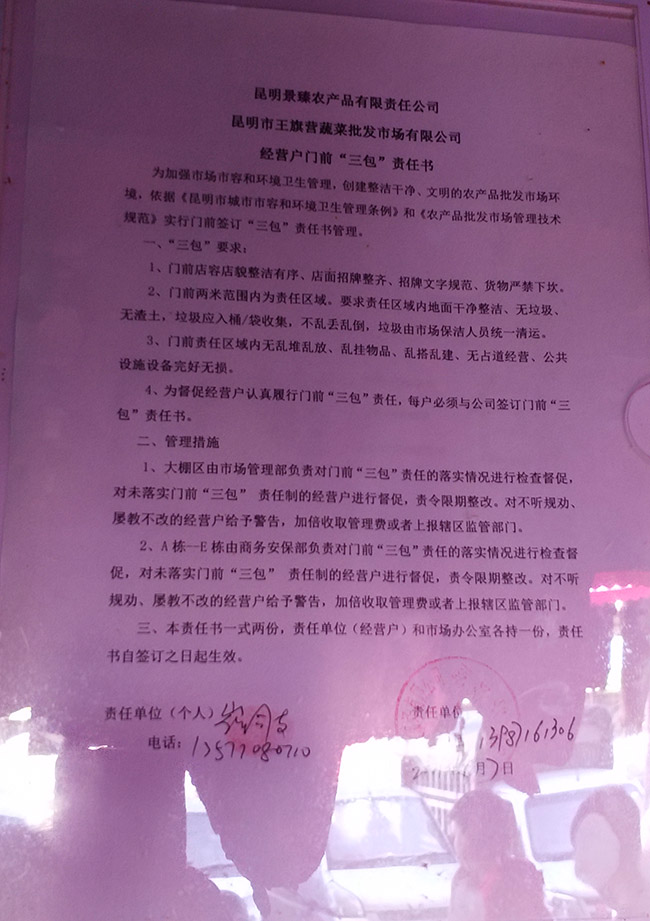 昆明景臻农产品有限责任公司
昆明市王旗营蔬菜批发市场有限公司
经营户门前“三包”责任书
为加强市场市容和环境卫生管理，创建整洁干净、文明的农产品批发市场环
境，依据《昆明市城市市容和环境卫生管理条例》和《农产品批发市场管理技术
规范》实行门前签订“三包”责任书管理。
一、“三包”要求：
1、门前店容店貌整洁有序、店面招牌整齐、招牌文字规范、货物严禁下坎。
2、门前两米范围内为责任区域。要求责任区域内地面干净整洁、无垃圾、
无渣土，垃圾应入桶/袋收集，不乱丢乱倒，垃圾由市场保洁人员统一清运。
3、门前责任区域内无乱堆乱放、乱挂物品、乱搭乱建、无占道经营、公共
设施设备完好无损。
4、为督促经营户认真履行门前“三包”责任，每户必须与公司签订门前“三
包”责任书。
二、管理措施
1、大棚区由市场管理部负责对门前“三包”责任的落实情况进行检查督促，
对未落实门前“三包” 责任制的经营户进行督促，责令限期整改。对不听规劝、
屡教不改的经营户给予警告，加倍收取管理费或者上报辖区监管部门。
2、A 栋--E 栋由商务安保部负责对门前“三包”责任的落实情况进行检查督
促，对未落实门前“三包” 责任制的经营户进行督促，责令限期整改。对不听
规劝、屡教不改的经营户给予警告，加倍收取管理费或者上报辖区监管部门。
三、本责任书一式两份，责任单位（经营户）和市场办公室各持一份，责任
书自签订之日起生效。
责任单位（个人） 责任单位
电话：13577080710 13787161306
月7日